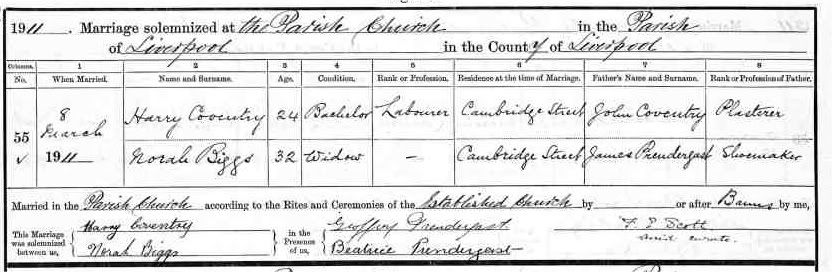 1911. Marriage solemnized at the Parish Church in the Parish
of Liverpool in the County of Liverpool
Columns. 1 2 3 4 5 6 7 8
No. When Married. Name and Surname. Age. Condition. Rank or Profession. Residence at the time of Marriage. Father's Name and Surname. Rank or Profession of Father.
55 8 March 1911 Harry Coventry 24 Bachelor Labourer Cambridge Street John Coventry Plasterer
Norah Biggs 32 Widow – Cambridge Street James Prendergast Shoemaker
Married in the Parish Church according to the Rites and Ceremonies of the Established Church by or after Banns by me,
This Marriage was solemnized between us, Harry Coventry in the Presence of us, Geoffry Prendergast F. S. Scott
Norah Biggs Beatrice Prendergast curate.